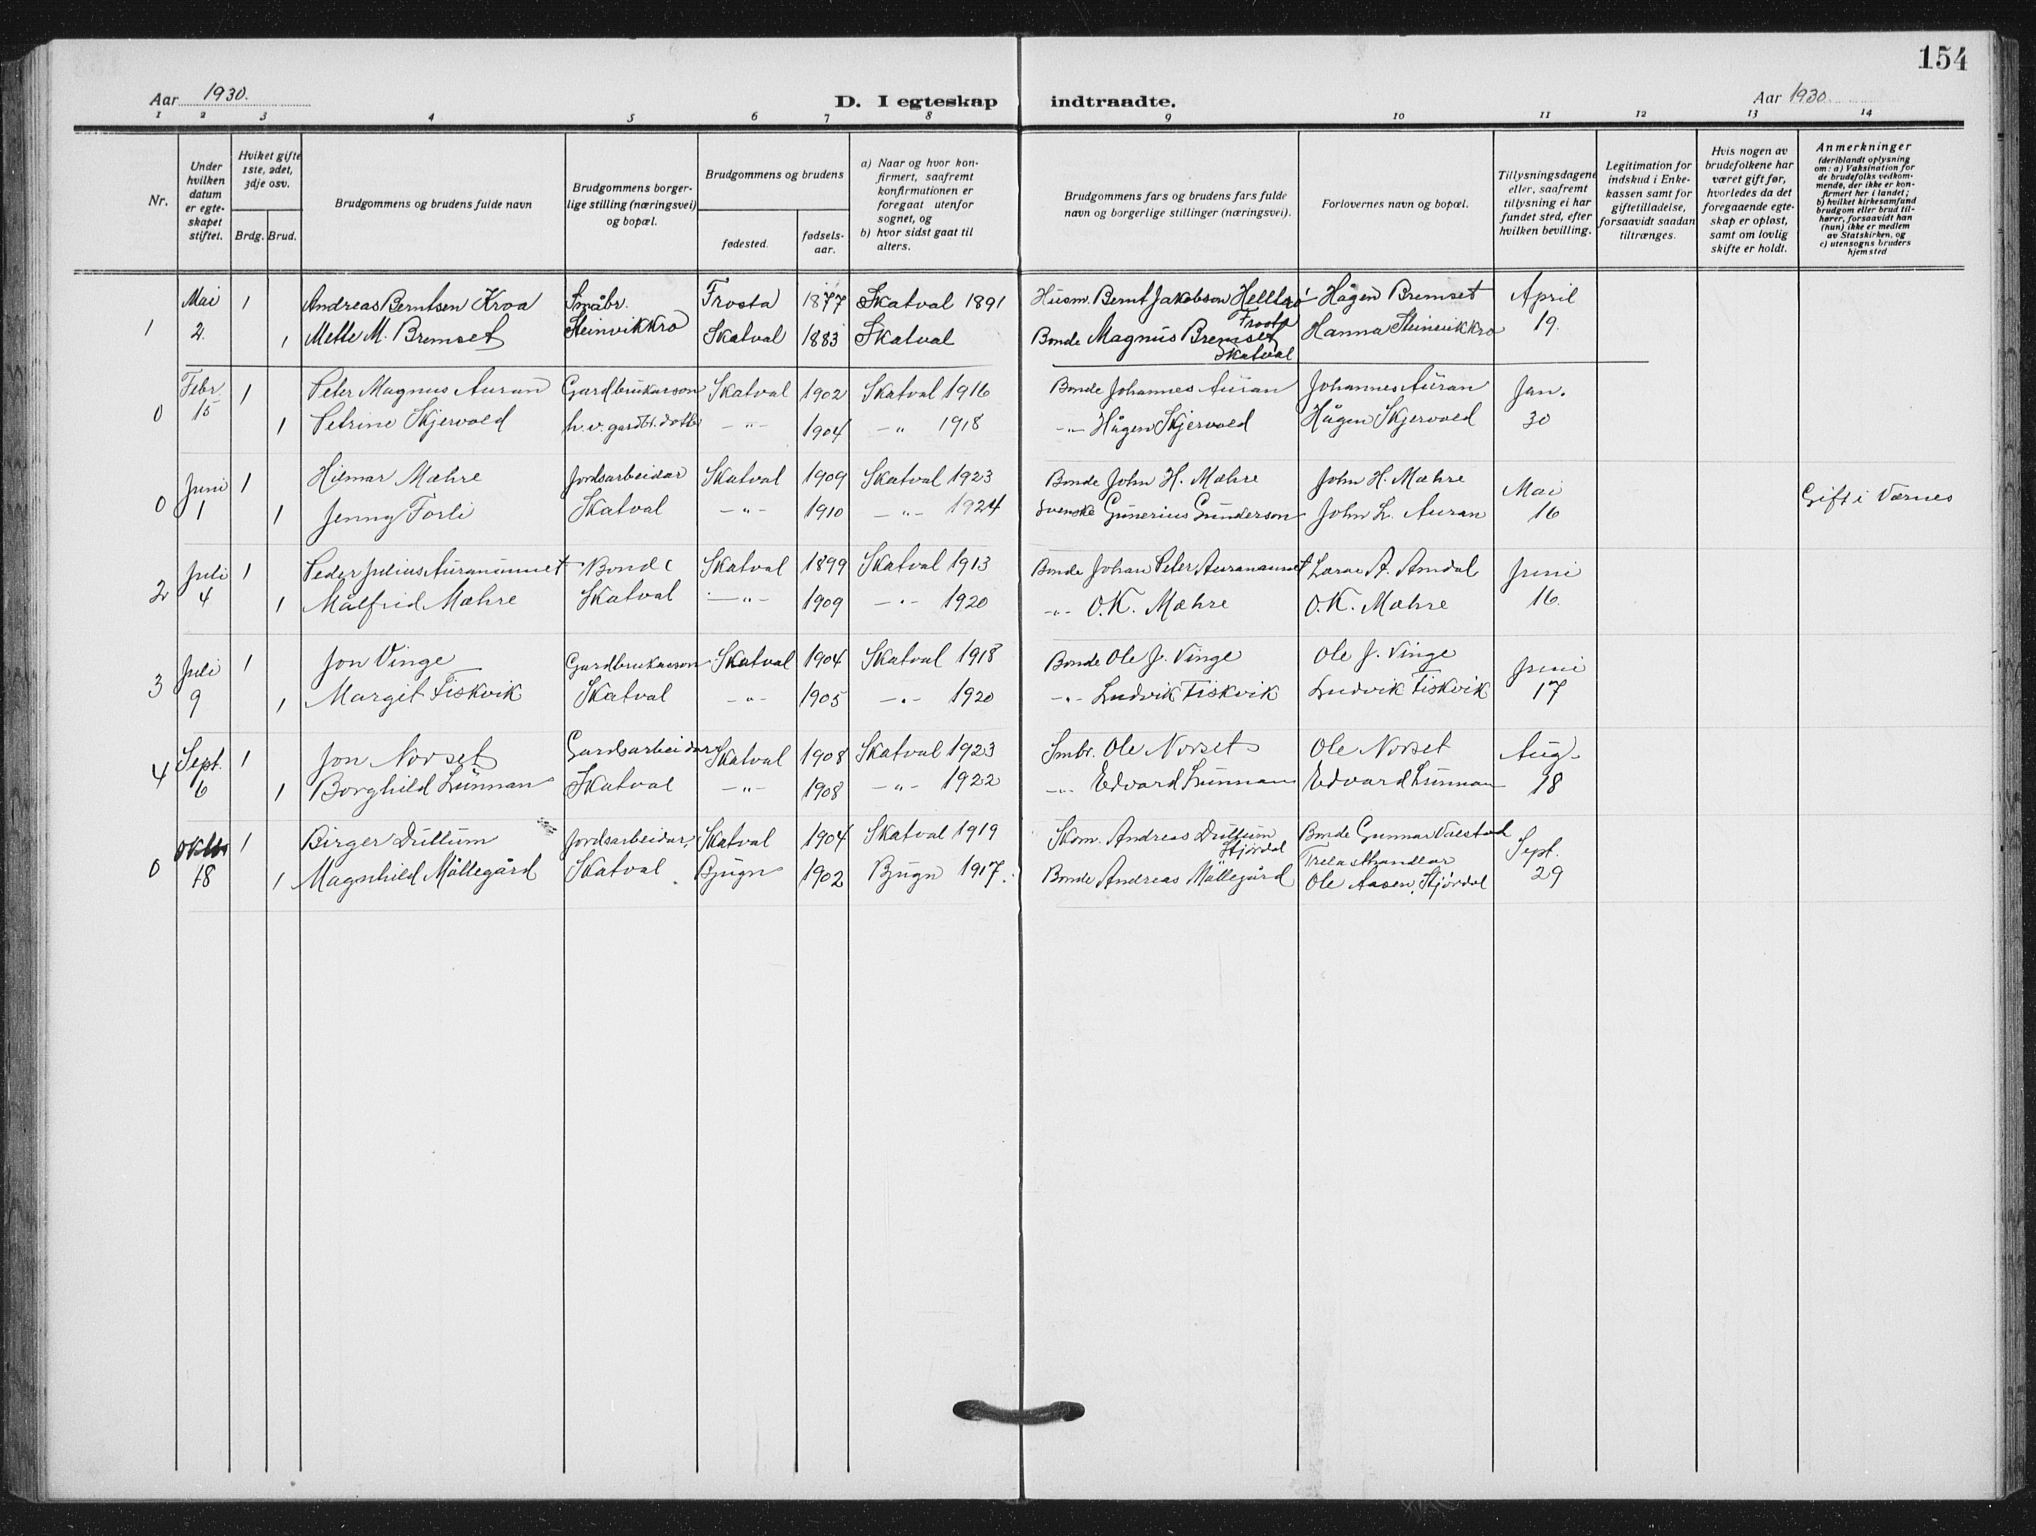 154
Aar 1930.
D. I egteskap indtraadte.
Aar 1930
1 2 3 4 5 6 7 8 9 10 11 12 13 14
Nr.
Under hvilken datum er egte-skapet stiftet.
Hviket gifte 1ste, 2det, 3dje osv.
Brdg. Brud.
Brudgommens og brudens fulde navn
Brudgommens borger-lige stilling (næringsvei) og bopæl.
Brudgommens og brudens
fødested.
fødsels-aar.
a) Naar og hvor kon-firmert, saafremt konfirmationen er foregaat utenfor sognet, og
b) hvor sidst gaat til alters.
Brudgommens fars og brudens fars fulde navn og borgerlige stillinger (næringsvei).
Forlovernes navn og bopæl.
Tillysningsdagene eller, saafremt tillysning ei har fundet sted, efter hvilken bevilling.
Legitimation for indskud i Enke-kassen samt for giftetilladelse, forsaavidt saadan tiltrænges.
Hvis nogen av brudefolkene har været gift før, hvorledes da det foregaaende egte-skap er opløst, samt om lovlig skifte er holdt.
Anmerkninger
(deriblandt oplysning om: a) Vaksination for de brudefolks vedkom-mende, der ikke er kon-firmert her i landet; b) hvilket kirkesamfund brudgom eller brud til-hører, forsaavidt han (hun) ikke er medlem av Statskirken, og c) utensogns bruders hjemsted
Mai 1 Andreas Berntsen Kroa Småbr. Frosta 1877 Skatval 1891 Husm. Bernt Jakobson Hågen Bremset April
Frosta
1 2. 1 Mette M. Bremset Steinvikkro Skatval 1883 Skatval Bonde Magnus Bremset Hanna Steinvikkro 19.
Skatval
Febr. 1 Peter Magnus Auran Gardbrukarson Skatval 1902 Skatval 1916 Bonde Johannes Auran Johannes Auran Jan.
0 15 1 Petrine Skjervold h.v. gardbr.dotter -"- 1904 -"- 1918 -"- Hågen Skjervold Hågen Skjervold 30
Juni 1 Hilmar Mæhre Jordsarbeidar Skatval 1909 Skatval 1923 Bonde John H. Mæhre John H. Mæhre Mai Gift i Værnes
0 1 1 Jenny Forli Skatval -"- 1910 -"- 1924 Svenske Gunerius Gunderson John L. Auran 16
Juli 1 Peder Julius Auranaunet Bonde Skatval 1899 Skatval 1913 Bonde Johan Peter Auranaunet A. Amdal Juni
2 4 1 Målfrid Mæhre Skatval -"- 1909 -"- 1920 -"- O.K. Mæhre O.K. Mæhre 16.
Juli 1 Jon Vinge Gardbrukarson Skatval 1904 Skatval 1918 Bonde Ole J. Vinge Ole J. Vinge Juni
3 9 1 Margit Fiskvik Skatval -"- 1905 -"- 1920 -"- Ludvik Fiskvik Ludvik Fiskvik 17
Sept. 1 Jon Norset Gardsarbeidar Skatval 1908 Skatval 1923 Smbr. Ole Norset Ole Norset Aug.
4 6 1 Borghild Lunnan Skatval -"- 1908 -"- 1922 -"- Edvard Lunnan Edvard Lunnan 18
Oktbr 1 Birger Dullum Jordsarbeidar, Skatval 1904 Skatval 1919 Skom. Andreas Dullum Bonde Gunnar Sept.
Stjørdal
0 18 1 Magnhild Møllegård Skatval Bjugn 1902 Bjugn 1917. Bonde Andreas Møllegård Ole Aasen, Stjørdal 29